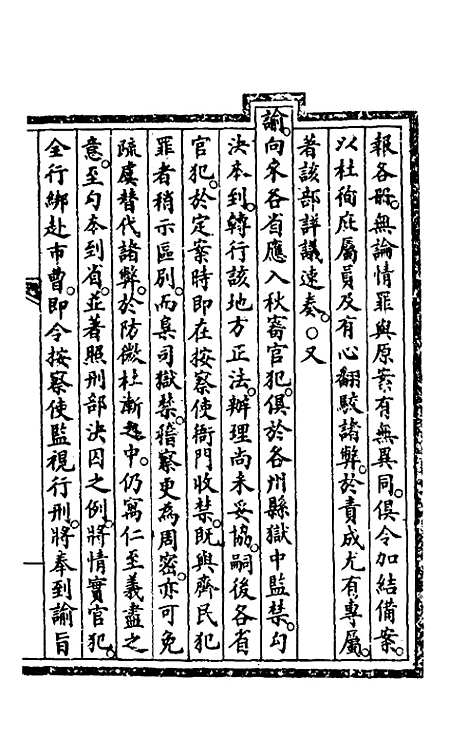 報各冊。無論情罪與原案有無異同。俱令加結備案。
以杜徇庇屬員及有心翻駮諸弊。於責成尤有專屬。
著該部詳議速奏。○又
諭。向來各省應入秋審官犯。俱於各州縣獄中監禁。勾
決本到。轉行該地方正法。辦理尚未妥協。嗣後各省
官犯。於定案時即在按察使衙門收禁。既與齊民犯
罪者稍示區別。而臬司獄禁。稽察更為周密。亦可免
疏虞替代諸弊。於防微杜漸之中。仍寓仁至義盡之
意。至勾本到省。並著照刑部決囚之例。將情實官犯。
全行綁赴市曹。即令按察使監視行刑。將奉到諭旨